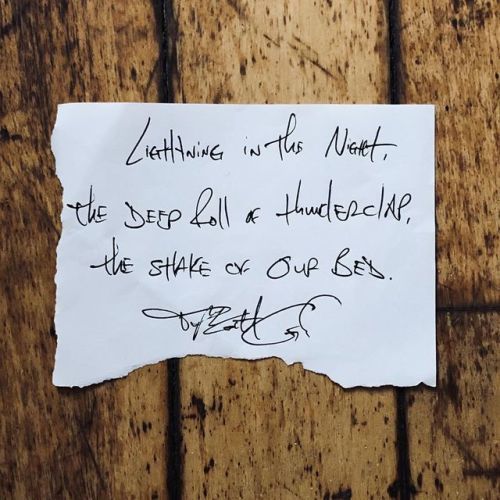 Lightning in the Night,
the Deep Roll of thunderclap,
the shake of Our Bed.